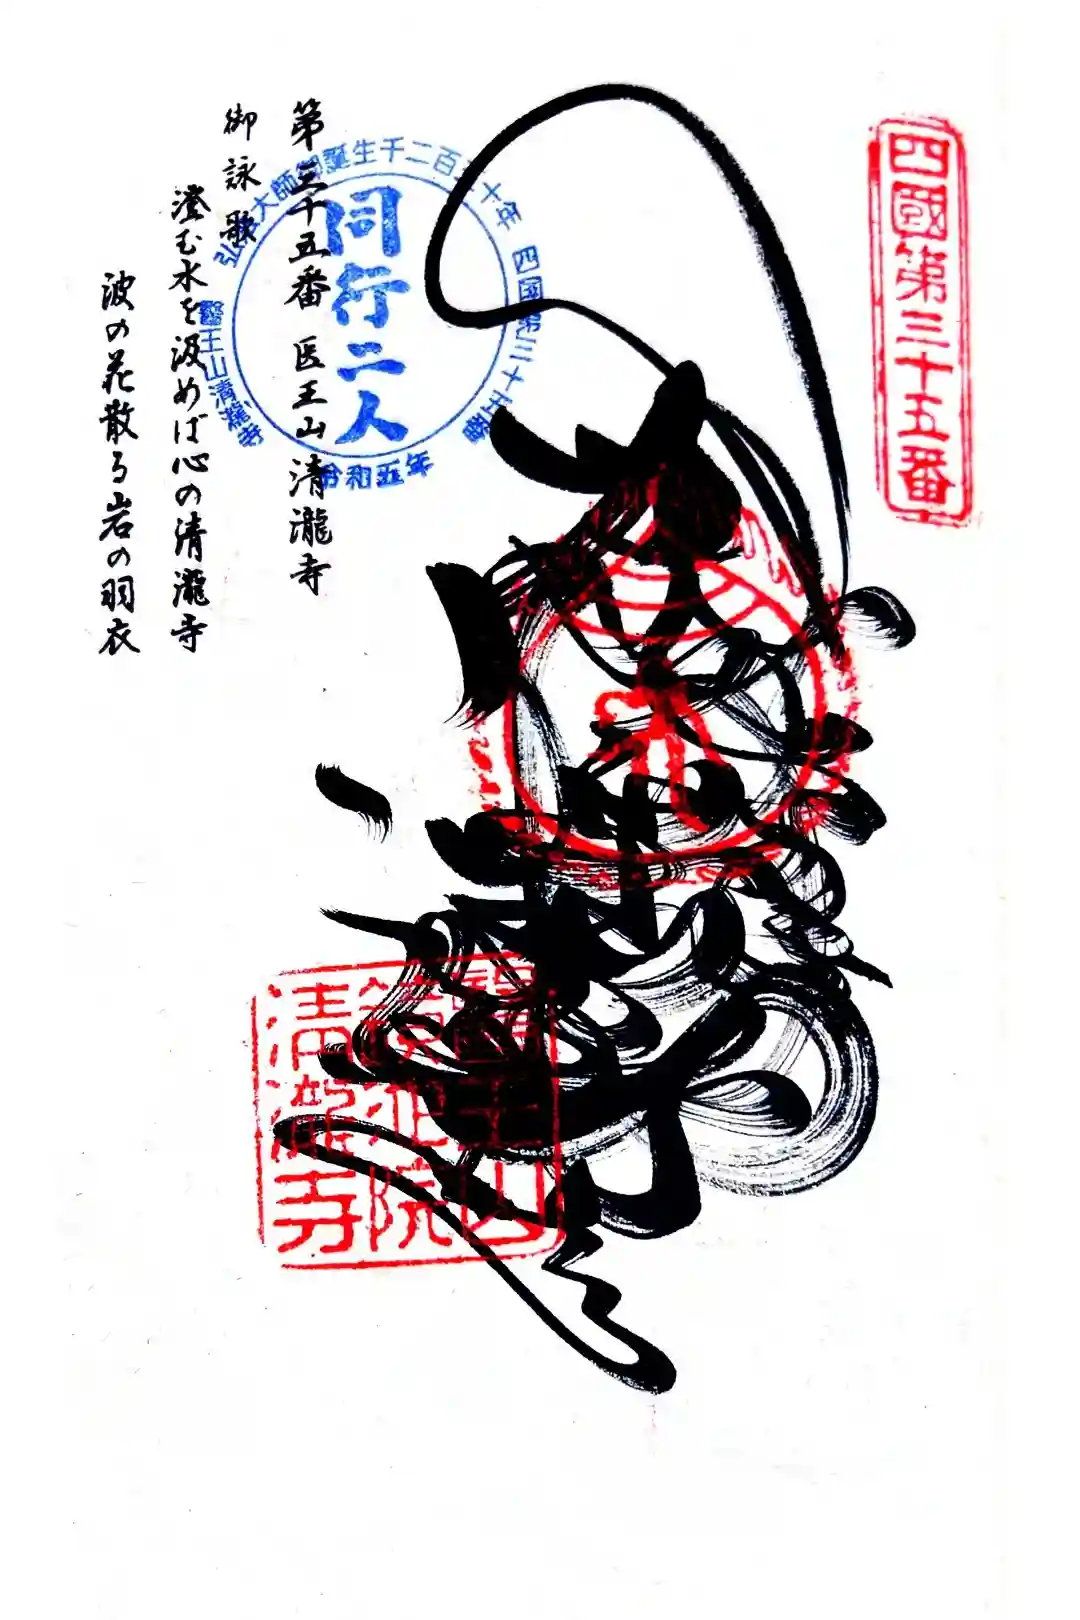 四國第三十五番
弘法大師御誕生千二百五十年
四國第三十五番
醫王山清瀧寺
同行二人
令和五年
第三十五番 医王山 清瀧寺
御詠歌
澄む水を汲めば心の清瀧寺
波の花散る岩の羽衣
醫王山
鏡池院
清瀧寺